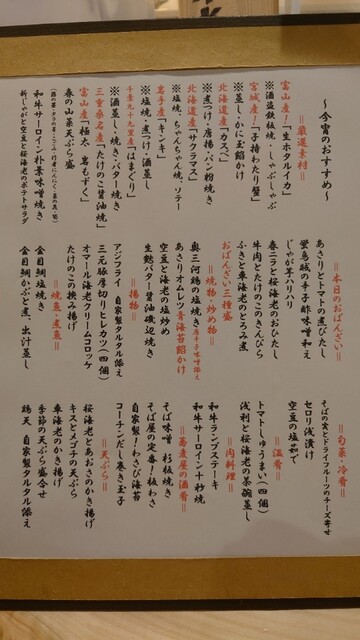 ～今宵のおすすめ～
＝厳選素材＝
富山産！「生ホタルイカ」
※酒盗鉄板焼・しゃぶしゃぶ
宮城産！「子持わたり蟹」
※蒸し・かに玉餡かけ
北海道産「カスベ」
※煮つけ・唐揚・パン粉焼き
北海道産「サクラマス」
※塩焼、ちゃんちゃん焼、ソテー
岩手産「キンキ」
※塩焼・煮つけ・酒蒸し
千葉九十九里産「はまぐり」
※酒蒸し・焼き・バター焼き
三重県桑名産「たけのこ醤油焼」
富山産「極太 岩もずく」
春の山菜天ぷら盛
和牛サーロイン朴葉味噌焼き
新じゃがと空豆と桜海老のポテトサラダ
＝本日のおばんざい＝
あさりとトマトの煮びたし
蛍烏賊の辛子酢味噌和え
じゃが芋ハリハリ
春ニラと桜海老のおひたし
牛肉とたけのこのきんぴら
ふきと車海老のとろみ煮
おばんざい三種盛
＝焼物・炒め物＝
奥三河鶏の塩焼き 唐辛子味噌添え
あさりオムレツ 青海苔餡かけ
空豆と海老の塩炒め
生麩バター醤油磯辺焼き
＝揚物＝
アジフライ 自家製タルタル添え
三元豚厚切りヒレカツ（四個）
オマール海老クリームコロッケ
たけのこの挟み揚げ
＝焼魚・煮魚＝
金目鯛塩焼き
金目鯛かぶと煮、出汁蒸し
＝旬菜・冷肴＝
そばの実とドライフルーツのチーズ寄せ
セロリ浅漬け
空豆の塩茹で
＝温肴＝
トマトしゅうまい（四個）
浅利と桜海老の茶碗蒸し
＝肉料理＝
和牛ランプステーキ
和牛サーロイン十秒焼
＝蕎麦屋の酒肴＝
そば味噌 杉板焼き
そば屋の定番！板わさ
自家製！わさび海苔
コーチンだし巻き玉子
＝天ぷら＝
桜海老とあおさのかき揚げ
キスとメゴチの天ぷら
車海老のかき揚げ
季節の天ぷら盛合せ
鶏天 自家製タルタル添え